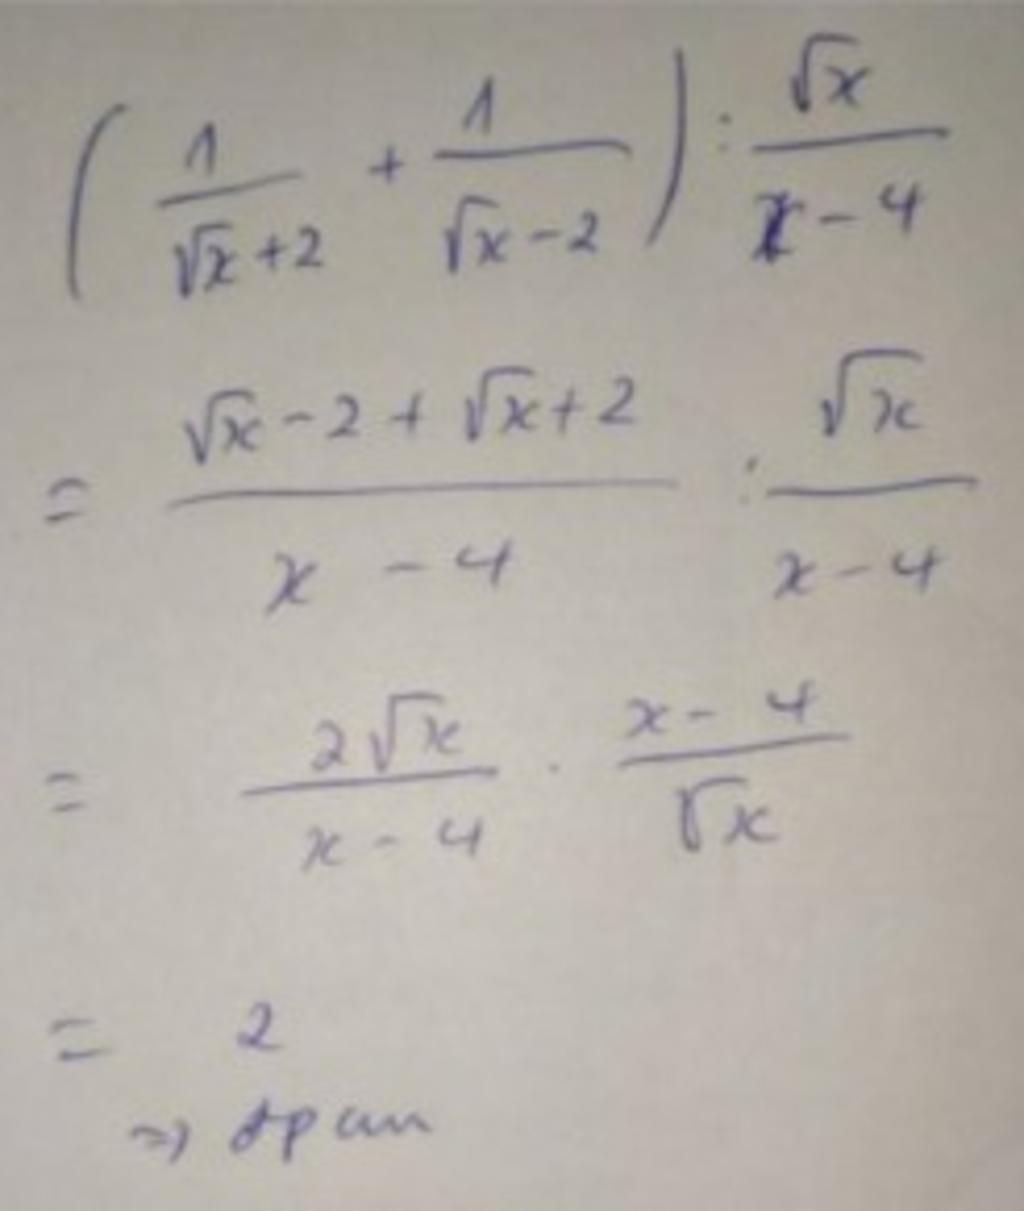 ( 1/(√x+2) + 1/(√x-2) ) : √x/(x-4)
= (√x-2+√x+2)/(x-4) : √x/(x-4)
= 2√x/(x-4) · (x-4)/√x
= 2
⇒ đpcm